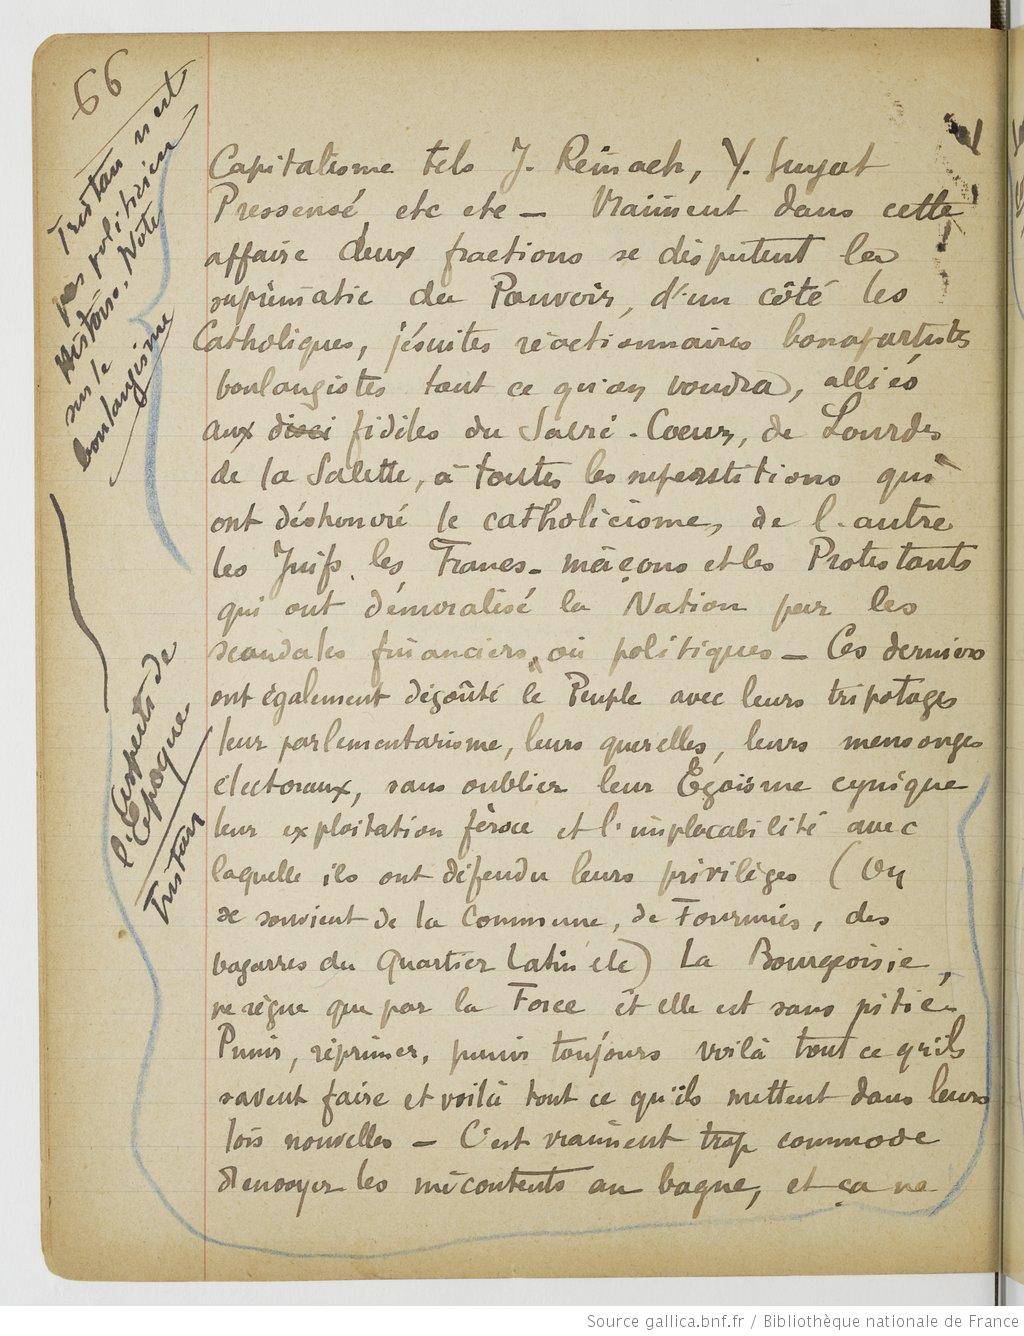 66
Tristan n'est
pas politicien
Histoire, Note
sur le
boulangisme
Capitalisme tels J. Reinach, Y. Guyot
Pressensé, etc etc — Vraiment dans cette
affaire deux fractions se disputent la
suprématie du Pouvoir, d'un côté les
Catholiques, jésuites réactionnaires bonapartistes
boulangistes tout ce qu'on voudra, alliés
aux disci fidèles du Sacré-Coeur, de Lourdes
de la Salette, à toutes les superstitions qui
ont déshonoré le catholicisme, de l'autre
les Juifs, les Francs-maçons et les Protestants
qui ont démoralisé la Nation par les
scandales financiers, ou politiques — Ces derniers
ont également dégoûté le Peuple avec leurs tripotages
leur parlementarisme, leurs querelles, leurs mensonges
électoraux, sans oublier leur Egoïsme cynique
leur exploitation féroce et l'implacabilité avec
laquelle ils ont défendu leurs privilèges (On
se souvient de la Commune, de Fourmies, des
bagarres du Quartier Latin etc) La Bourgeoisie,
ne règne que par la Force et elle est sans pitié
Punir, réprimer, punir toujours voilà tout ce qu'ils
savent faire et voilà tout ce qu'ils mettent dans leurs
lois nouvelles — C'est vraiment trop commode
d'envoyer les mécontents au bagne, et ça ne
Aspects de
l'Epoque
Tristan
Source gallica.bnf.fr / Bibliothèque nationale de France